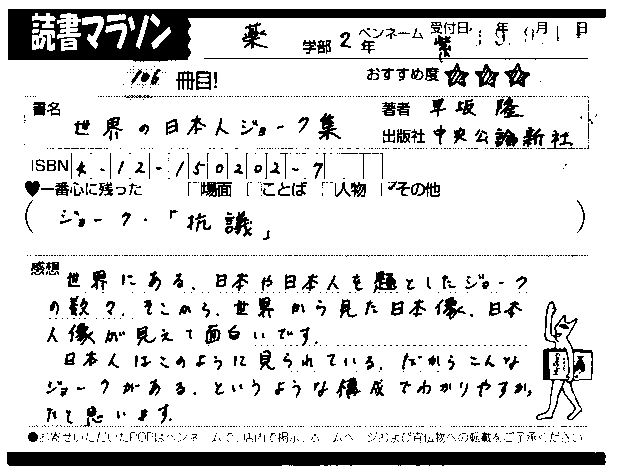 読書マラソン
薬 学部 2年 ペンネーム 紫 受付日 年 月 日
106 冊目! おすすめ度 ☆☆☆
書名 世界の日本人ジョーク集
著者 早坂 隆
出版社 中央公論新社
ISBN 4-12-150202-7
♥一番心に残った □場面 □ことば □人物 ☑その他
( ジョーク・「抗議」 )
感想 世界にある、日本や日本人を題としたジョーク
の数々。そこから、世界から見た日本像、日本
人像が見えて面白いです。
日本人はこのように見られている、だからこんな
ジョークがある、というような構成でわかりやすかっ
たと思います。
●お寄せいただいたPOPはペンネームで、店内で掲示、ホームページおよび宣伝物への転載をご了承ください